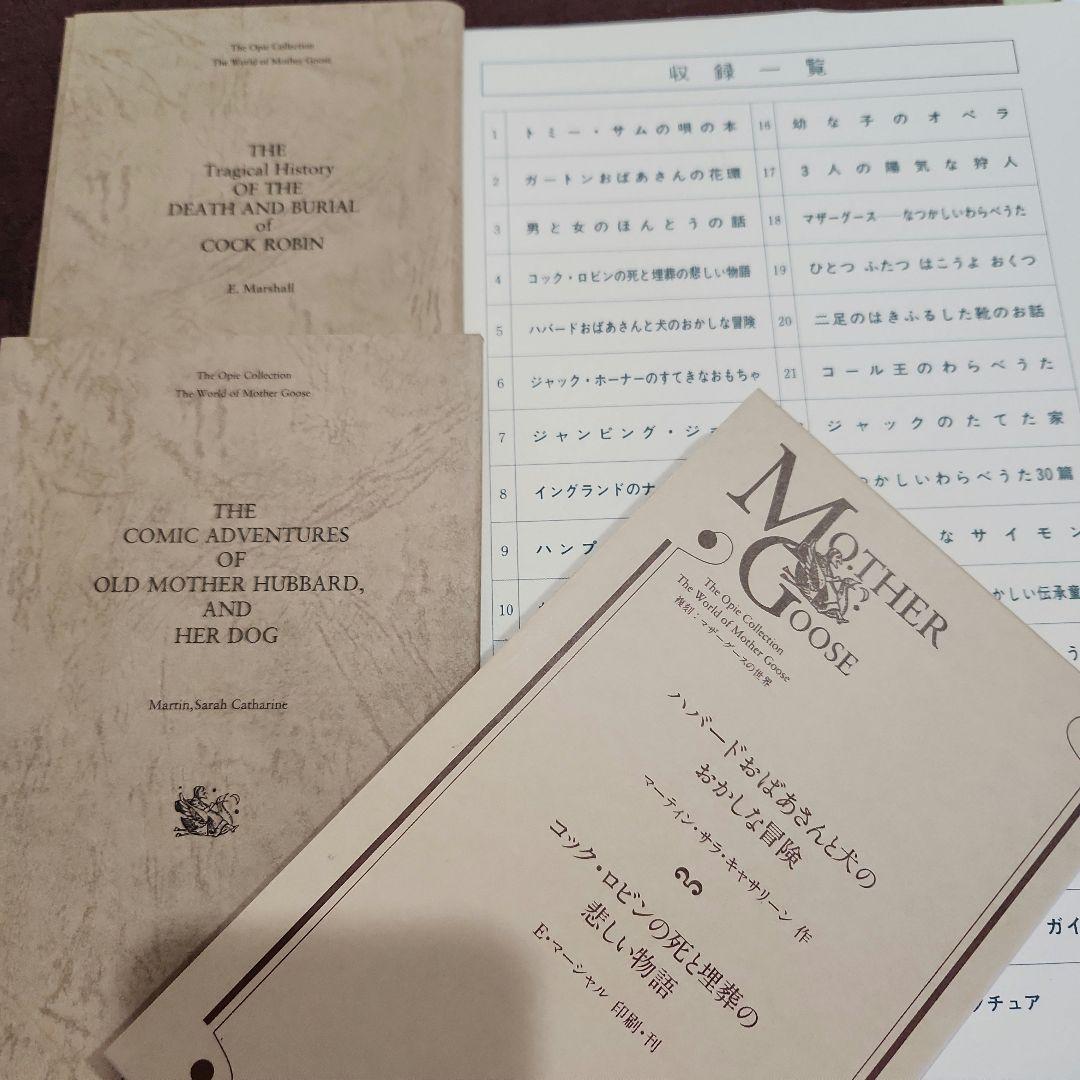 The Opie Collection
The World of Mother Goose
THE
Tragical History
OF THE
DEATH AND BURIAL
of
COCK ROBIN
E. Marshall
The Opie Collection
The World of Mother Goose
THE
COMIC ADVENTURES
OF
OLD MOTHER HUBBARD,
AND
HER DOG
Martin, Sarah Catharine
収録一覧
1 トミー・サムの唄の本
2 ガートンおばあさんの花環
3 男と女のほんとうの話
4 コック・ロビンの死と埋葬の悲しい物語
5 ハバードおばあさんと犬のおかしな冒険
6 ジャック・ホーナーのすてきなおもちゃ
7 ジャンピング・ジ
8 イングランドのナ
9 ハンプ
10
16 幼な子のオペラ
17 3人の陽気な狩人
18 マザーグース──なつかしいわらべうた
19 ひとつ ふたつ はこうよ おくつ
20 二足のはきふるした靴のお話
21 コール王のわらべうた
ジャックのたてた家
つかしいわらべうた30篇
なサイモン
かしい伝承童
う
ガイ
ッチュア
MOTHER
GOOSE
The Opie Collection
The World of Mother Goose
複刻:マザーグースの世界
ハバードおばあさんと犬の
おかしな冒険
マーティン・サラ・キャサリーン 作
コック・ロビンの死と埋葬の
悲しい物語
E・マーシャル 印刷・刊